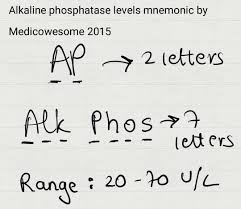 Alkaline phosphatase levels mnemonic by
Medicowesome 2015
AP → 2 letters
Alk Phos → 7
letters
Range : 20 - 70 U/L